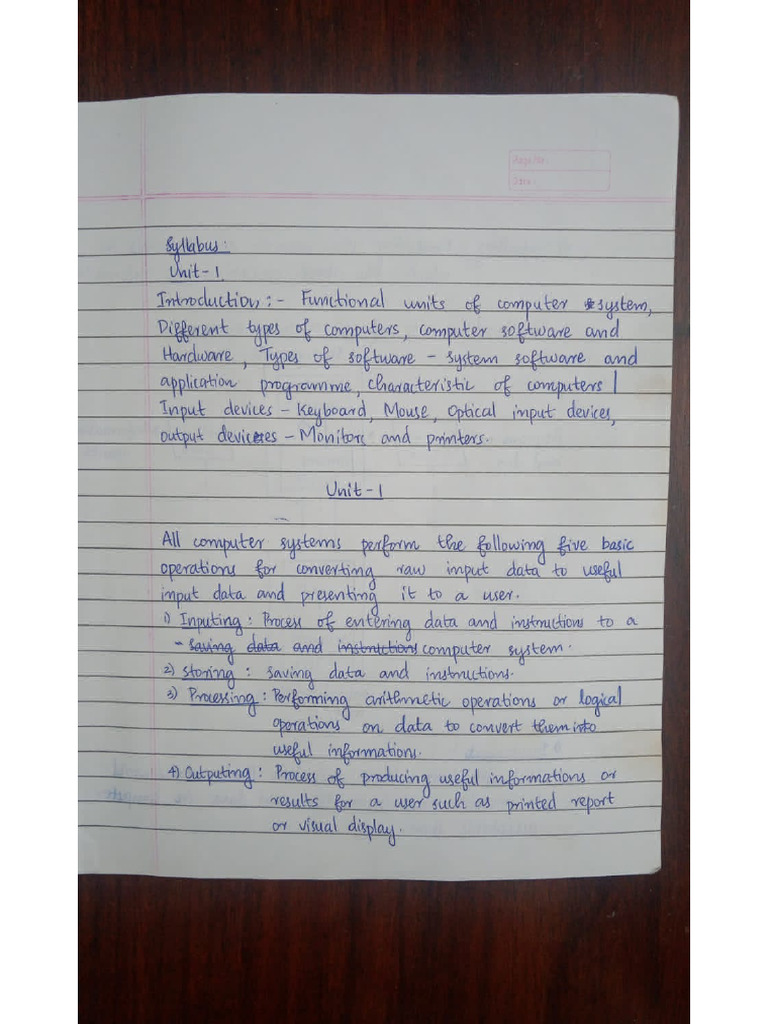 Page No.
Date
Syllabus:
Unit-1
Introduction:- Functional units of computer system,
Different types of computers, computer software and
Hardware, Types of software - system software and
application programme, characteristic of computers |
Input devices - Keyboard, Mouse, Optical input devices,
output devices - Monitors and printers.
Unit-1
All computer systems perform the following five basic
operations for converting raw input data to useful
input data and presenting it to a user.
1) Inputing: Process of entering data and instructions to a
- saving data and instructions computer system.
2) storing : saving data and instructions.
3) Processing : Performing arithmetic operations or logical
operations on data to convert them into
useful informations.
4) Outputing : Process of producing useful informations or
results for a user such as printed report
or visual display.